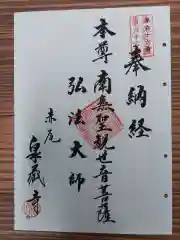 奉納経
本尊 南無聖観世音菩薩
弘法大師
赤尾
泉蔵寺